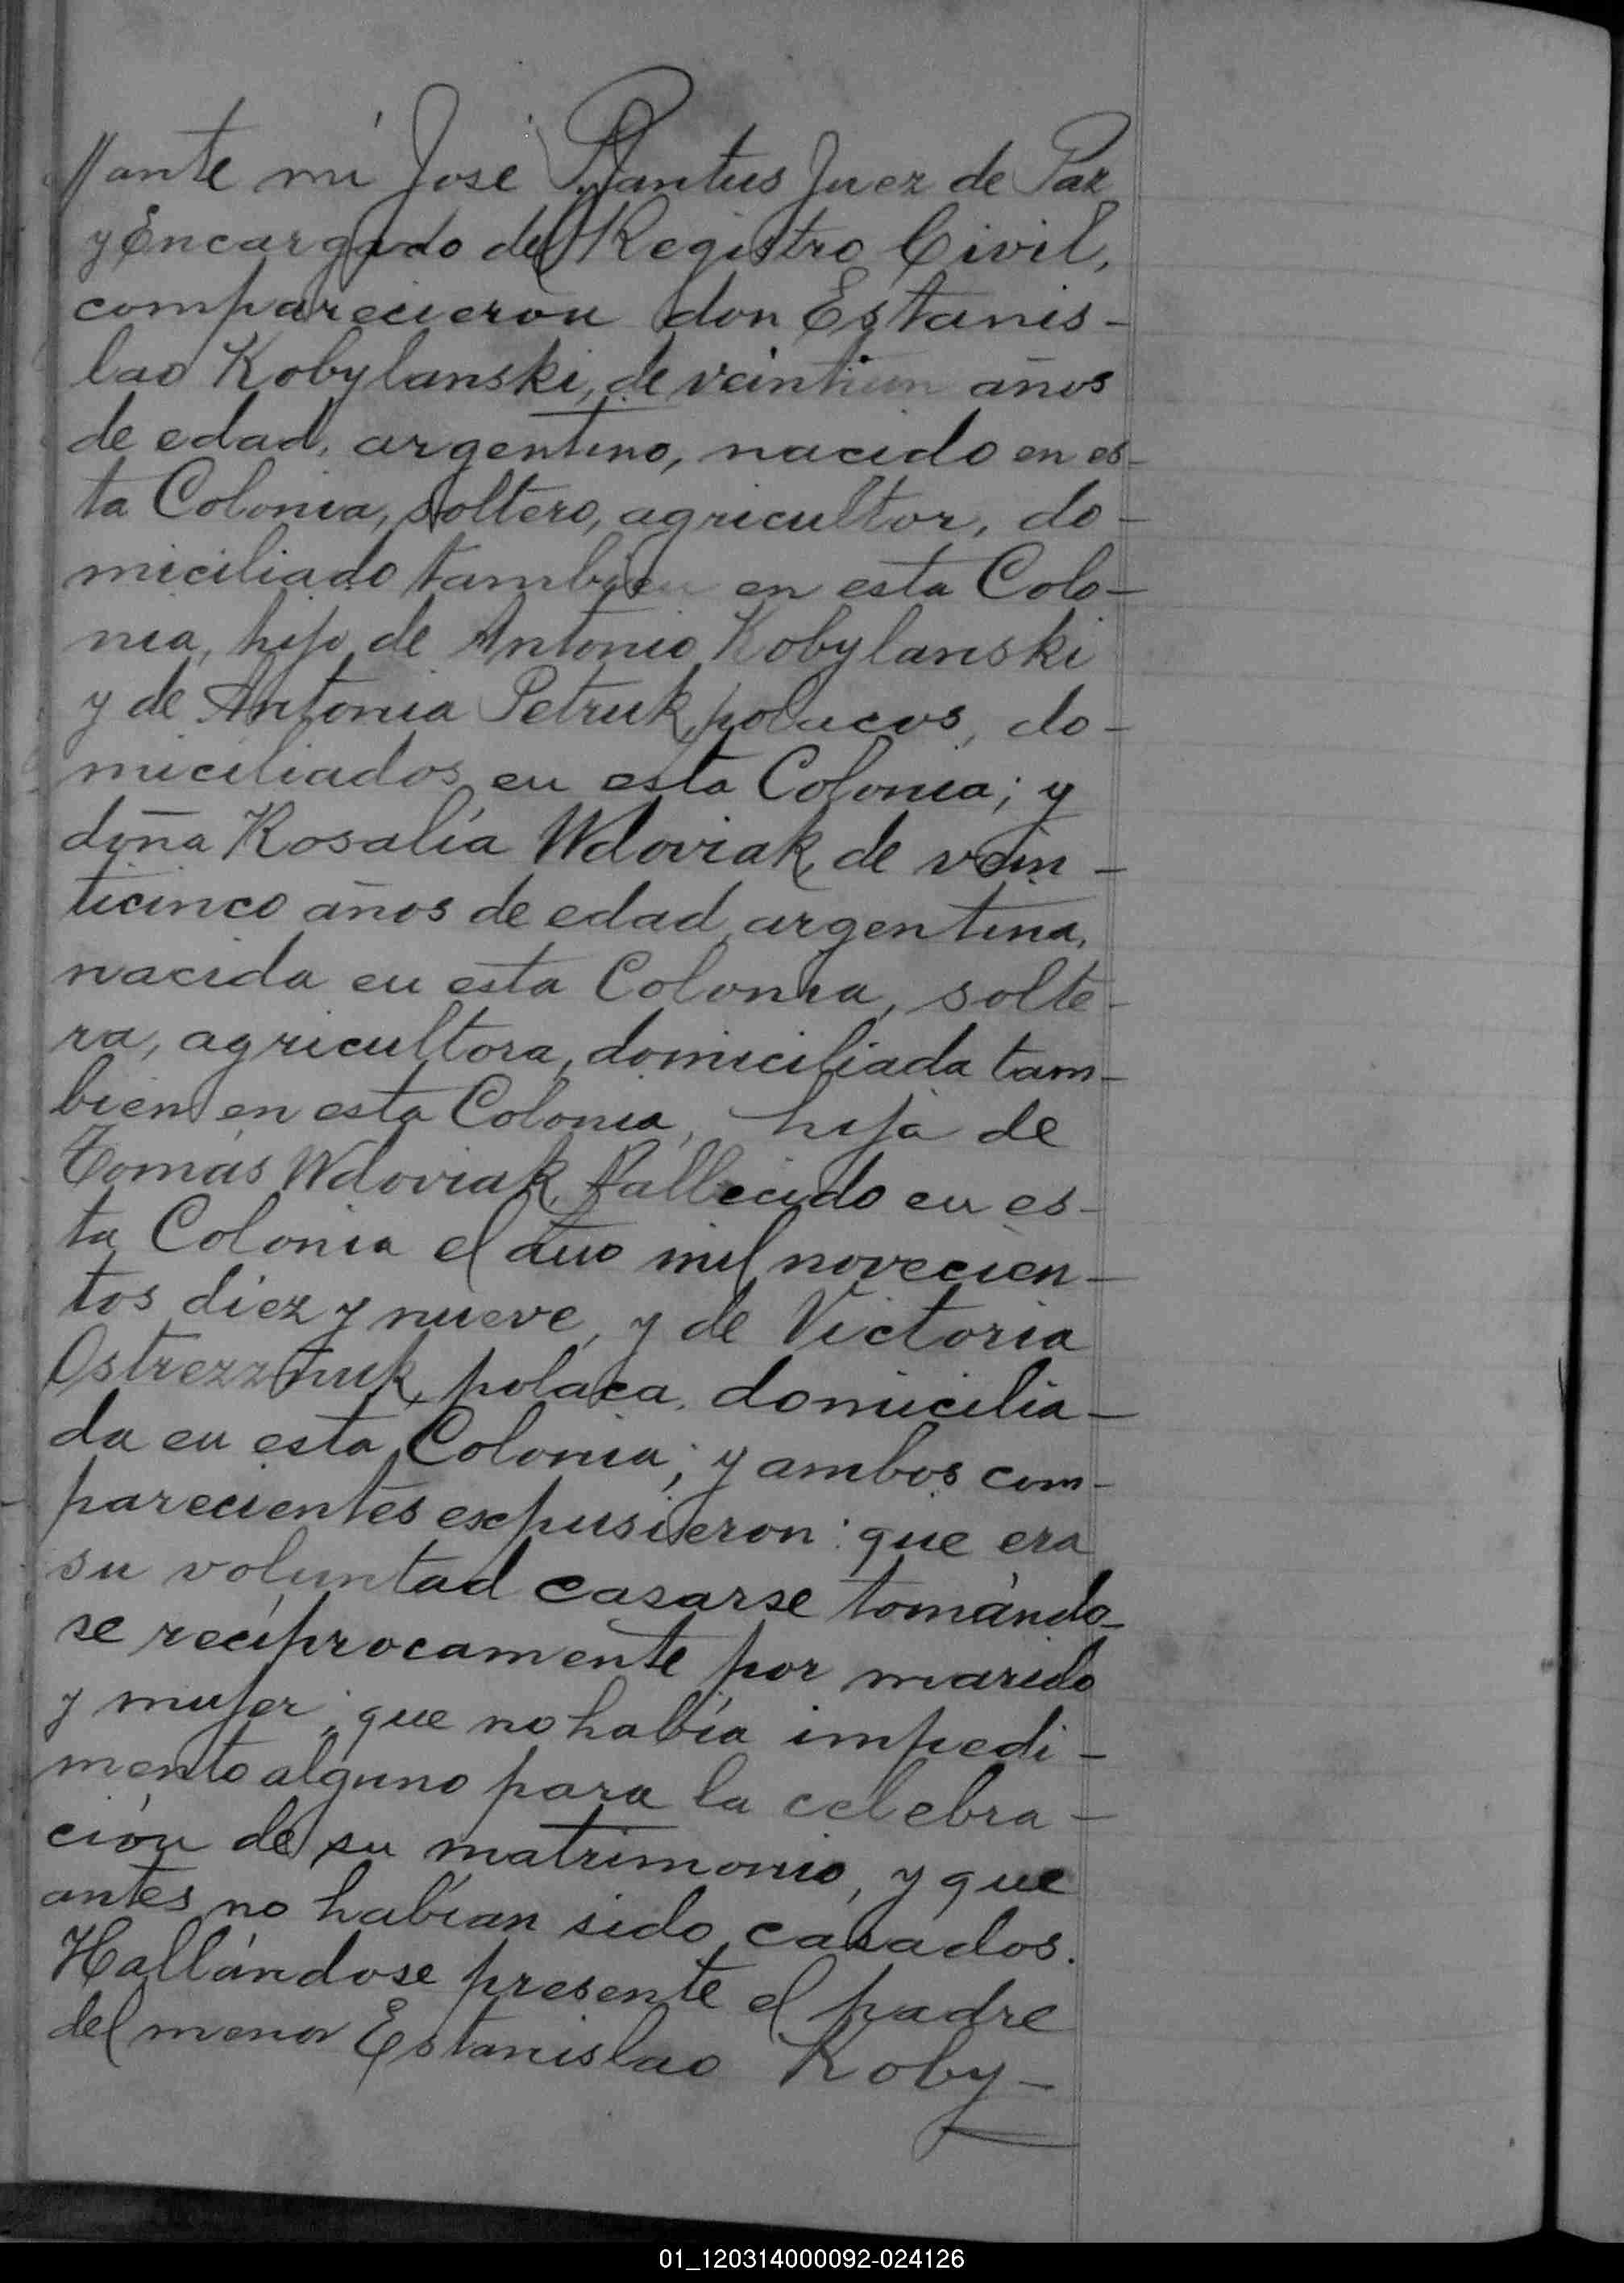 // ante mí José Plantus Juez de Paz
y Encargado del Registro Civil,
comparecieron don Estanis-
lao Kobylanski, de veintiun años
de edad, argentino, nacido en es-
ta Colonia, soltero, agricultor, do-
miciliado tambien en esta Colo-
nia, hijo de Antonio Kobylanski
y de Antonia Petruk, polacos, do-
miciliados en esta Colonia; y
doña Rosalía Wdoviak, de vein-
ticinco años de edad, argentina,
nacida en esta Colonia, solte-
ra, agricultora, domiciliada tam-
bien en esta Colonia, hija de
Tomás Wdoviak, fallecido en es-
ta Colonia el año mil novecien-
tos diez y nueve, y de Victoria
polaca, domicilia-
da en esta Colonia; y ambos com-
parecientes expusieron: que era
su voluntad casarse tomándo-
se recíprocamente por marido
y mujer; que no había impedi-
mento alguno para la celebra-
ción de su matrimonio, y que
antes no habían sido casados.
Hallándose presente el padre
del menor Estanislao Koby-
01_120314000092-024126